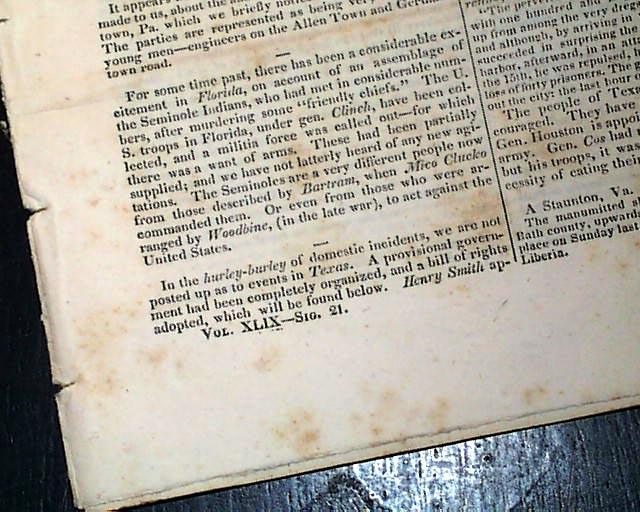 It appears
made to us, about the
town, Pa. which we briefly
The parties are represented as being
young men—engineers on the Allen Town and
town road.
For some time past, there has been a considerable ex-
citement in Florida, on account of an assemblage of
the Seminole Indians, who had met in considerable num-
bers, after murdering some "friendly chiefs." The U.
S. troops in Florida, under gen. Clinch, have been col-
lected, and a militia force was called out—for which
there was a want of arms. These had been partially
supplied; and we have not latterly heard of any new agi-
tations. The Seminoles are a very different people now
from those described by Bartram, when Mico Clucko
commanded them. Or even from those who were ar-
ranged by Woodbine, (in the late war), to act against the
United States.
In the hurley-burley of domestic incidents, we are not
posted up as to events in Texas. A provisional govern-
ment had been completely organized, and a bill of rights
adopted, which will be found below. Henry Smith ap-
Vol. XLIX—Sig. 21.
with one hundred
up from among the very
and although, by arriving in
succeeded in surprising the
harbor, afterward, in an
the 15th, he was repulsed,
loss of forty prisoners. The
out the city: the last hour
The people of
couraged. They have
Gen. Houston is
army. Gen. Cos had
but his troops, it was
cessity of eating their
A Staunton, Va.
The manumitted
Bath county, upwards
place on Sunday last
Liberia.